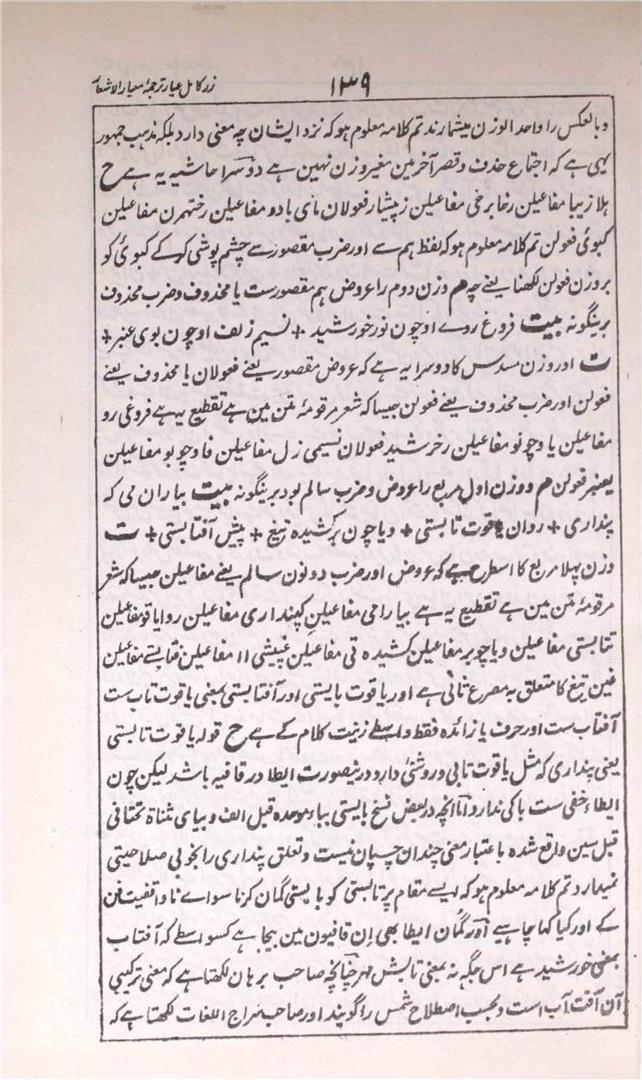 زر کامل عیار ترجمۂ معیار الاشعار
۱۳۹
وبالعکس را واحد الوزن میشمارند تم کلامہ معلوم ہو کہ نزد ایشان چہ معنی دارد بلکہ مذہب جمہور
یہی ہے کہ اجتماع حذف و قصر آخر مین مغیر وزن نہین ہے دوسرا حاشیہ یہ ہے ح
ہلا زیبا مفاعیلن رخا برخی مفاعیلن زپیشار فعولان مای بادو مفاعیلن رختہرن مفاعیلن
کبوئی فعولن تم کلامہ معلوم ہو کہ لفظ ہم سے اور ضرب مقصور سے چشم پوشی کر کے کبوئی کو
بروزن فعولن لکھنا یعنے چہ م وزن دوم را عروض ہم مقصورست یا محذوف و ضرب محذوف
برینگونہ بیت فروغ روے او چون نور خورشید + نسیم زلف او چون بوی عنبر +
ت اور وزن مسدس کا دوسرا یہ ہے کہ عروض مقصور یعنے فعولان یا محذوف یعنے
فعولن اور ضرب محذوف یعنے فعولن جیسا کہ شعر مرقومۂ متن مین ہے تقطیع یہ ہے فروغی رو
مفاعیلن یا وچو نو مفاعیلن رخرشید فعولان نسیمی زل مفاعیلن فاوچو بو مفاعیلن
یعنبر فعولن م و وزن اول مربع را عروض و ضرب سالم بود برینگونہ بیت بیاران می کہ
پنداری + روان یاقوت تابستی + ویا چون برکشیدہ تیغ + پیش آفتابستی + ت
وزن پہلا مربع کا اسطرح ہے کہ عروض اور ضرب دونون سالم یعنے مفاعیلن جیسا کہ شعر
مرقومۂ متن مین ہے تقطیع یہ ہے بیارامی مفاعیلن کپنداری مفاعیلن روایاقو مفاعیلن
تتابستی مفاعیلن ویاچوبر مفاعیلن کشیدہ تی مفاعیلن غپیشی اا مفاعیلن فتابستے مفاعیلن
غین تیغ کا متعلق بہ مصرع ثانی ہے اور یاقوت بایستی اور آفتابستی بمعنی یاقوت تاب ست
آفتاب ست اور حرف یا زائدہ فقط واسطے زینت کلام کے ہے ح قولہ یاقوت تابستی
یعنی پنداری کہ مثل یاقوت تابی و روشنی دارد درینصورت ایطا در قافیہ باشد لیکن چون
ایطاء خفی ست باکی ندارد اما انچہ در بعض نسخ بایستی بباء موحدہ قبل الف و بیای مثناۃ تحتانی
قبل سین واقع شدہ باعتبار معنی چندان چسپان نیست و تعلق پنداری را بخوبی صلاحیتی
نمیدارد تم کلامہ معلوم ہو کہ ایسے مقام پر تابستی کو بایستی گمان کرنا سواے ناواقفیت فن
کے اور کیا کہا چاہیے اور گمان ایطا بھی اِن قافیون مین بیجا ہے کسواسطے کہ آفتاب
بمعنی خورشید ہے اس جگہ نہ بمعنی تابش مہر چنانچہ صاحب برہان لکھتا ہے کہ معنی ترکیبی
آن آفت آب است و بحسب اصطلاح شمس را گویند اور صاحب سراج اللغات لکھتا ہے کہ